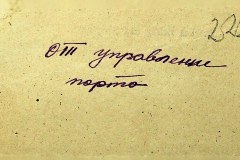 22
От управление
порта